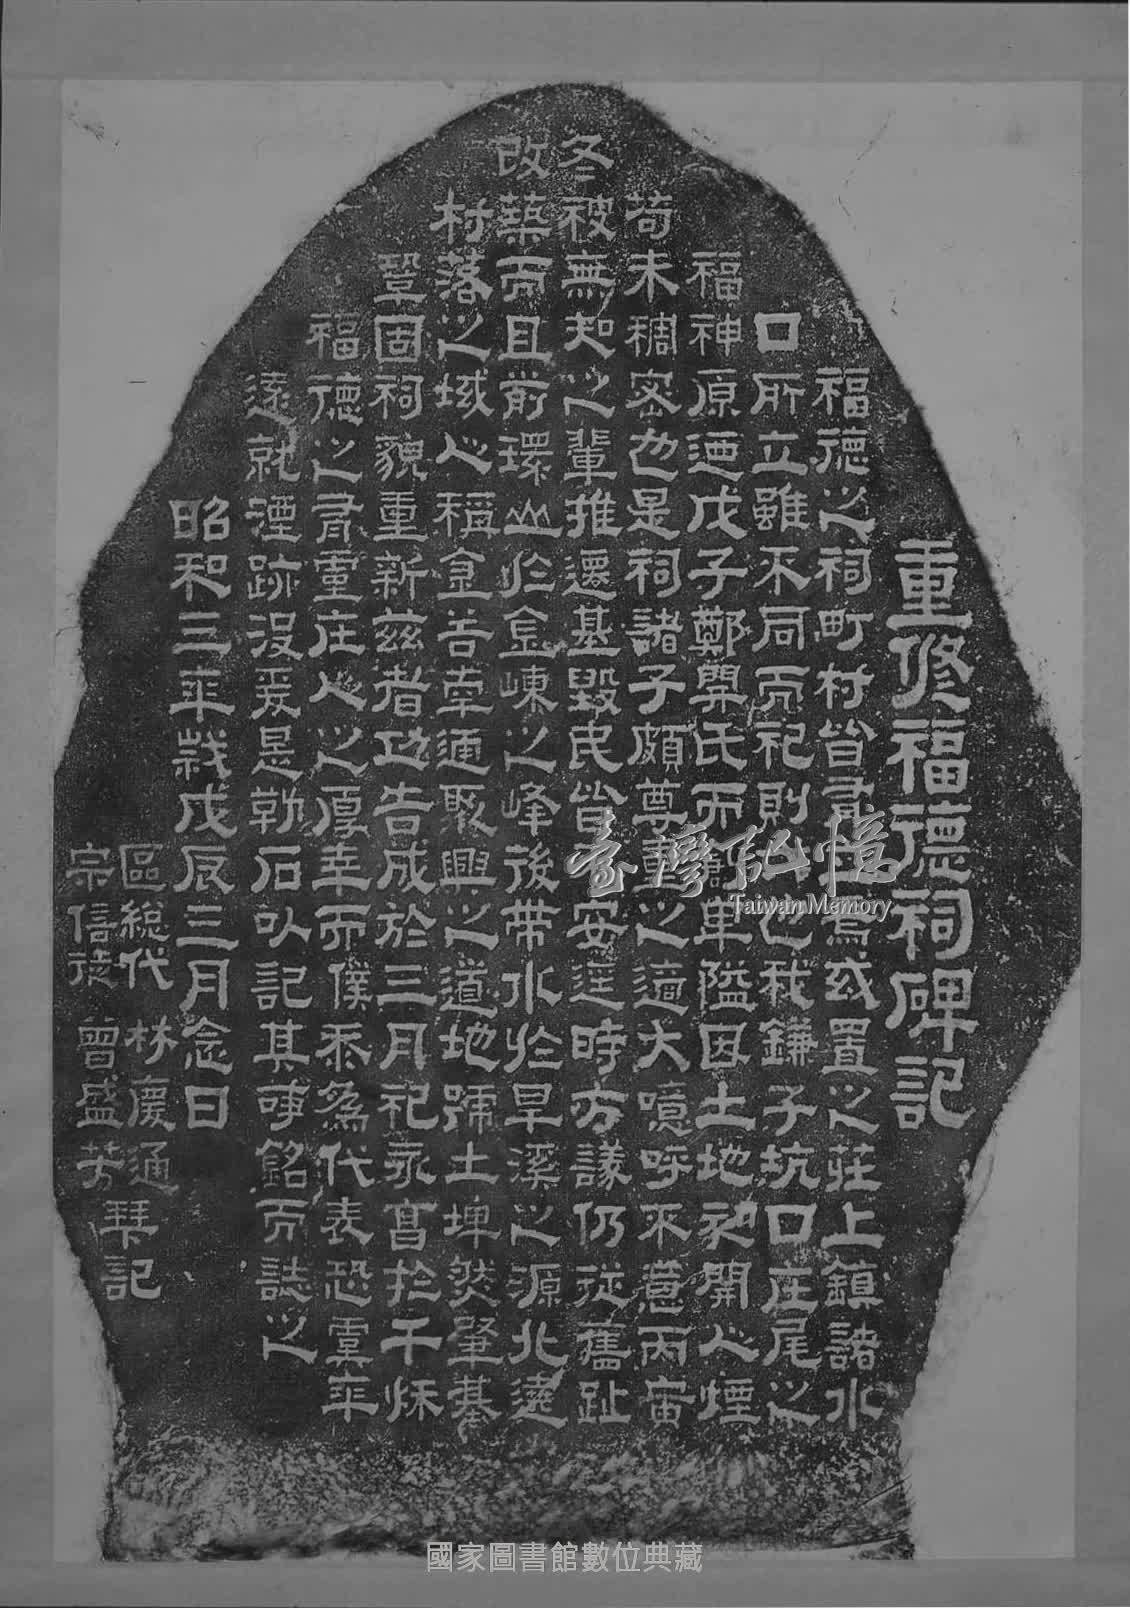 重修福德祠碑記
福德之祠町村皆有焉或置之莊上鎮諸水
口所立雖不同而祀則一也我鎌子坑口庄尾之
福神原迺戊子鄭開氏而創卑隘因土地初開人煙
苟未稠密也是祠諸子頗尊重之適大噫呼不意丙寅
冬被無知之輩推還基毀民皆不安迋時方議仍從舊趾
改築而且前環山於金崠之峰後帶水於旱溪之源北遶
村落之域人稱盒善幸通聚興之道地號土埤然肇基
鞏固祠貌重新茲者功告成於三月祀永昌於千秋
福德之有靈庄人之厚幸而僕忝為代表恐雲年
遠就湮跡沒爰是勒石以記其事銘而誌之
昭和三年歲戊辰三月念日
區總代 林慶通
宗信徒 曾盛芳 琹記
臺灣記憶
Taiwan Memory
國家圖書館數位典藏